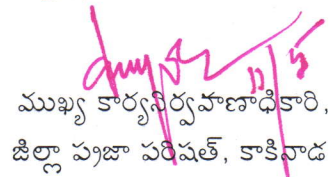 ముఖ్య కార్యనిర్వహణాధికారి,
జిల్లా ప్రజా పరిషత్, కాకినాడ